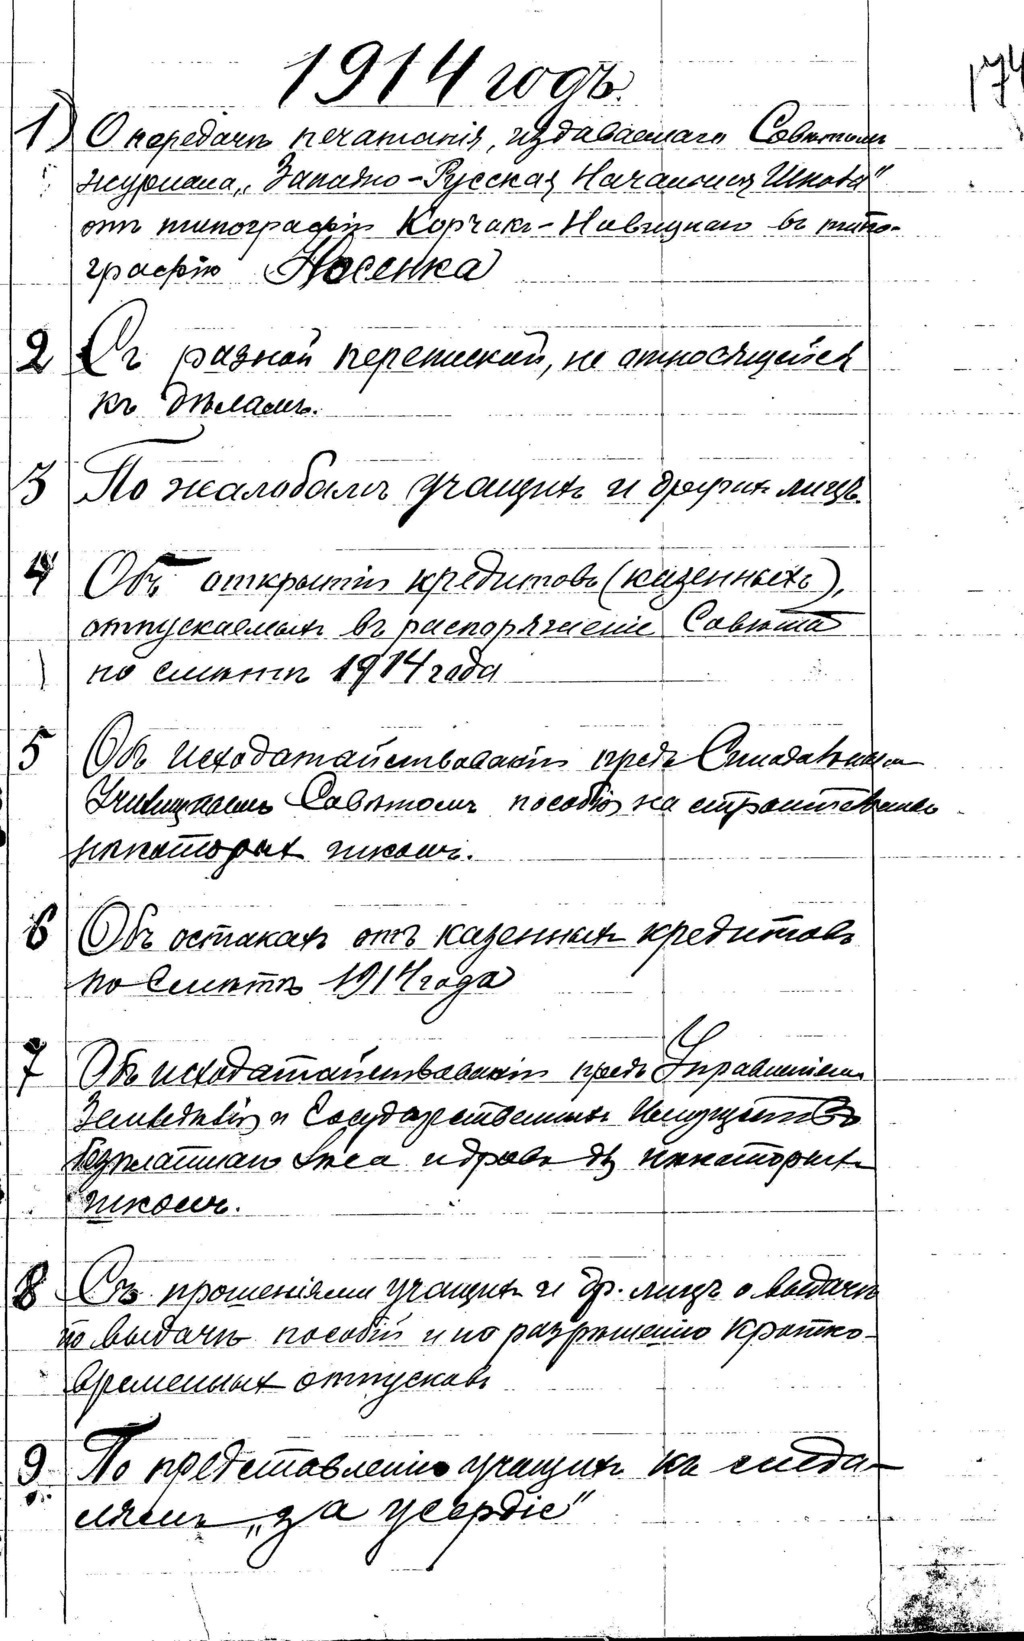 1914 годъ.
174
1) О передачѣ печатанія, издаваемаго Совѣтомъ
журнала „Западно-Русская Начальная Школа"
отъ типографіи Корчакъ-Новицкаго въ типо-
графію Носенка
2 Съ разной перепиской, не относящейся
къ дѣламъ.
3 По жалобамъ учащихъ и другихъ лицъ.
4 Объ открытіи кредитовъ (казенныхъ),
отпускаемыхъ въ распоряженіе Совѣта
по смѣтѣ 1914 года
5 Объ исходатайствованіи предъ Синодальнымъ
Училищнымъ Совѣтомъ пособія на строительство
нѣкоторыхъ школъ.
6 Объ остаткахъ отъ казенныхъ кредитовъ
по Смѣтѣ 1914 года
7 Объ исходатайствованіи предъ Управленіемъ
Земледѣлія и Государственныхъ Имуществъ
безплатнаго лѣса и дровъ для нѣкоторыхъ
школъ.
8 Съ прошеніями учащихъ и др. лицъ о выдачѣ
по выдачѣ пособій и по разрѣшенію кратко-
временныхъ отпусковъ
9 По представленію учащихъ къ меда-
лямъ „за усердіе"